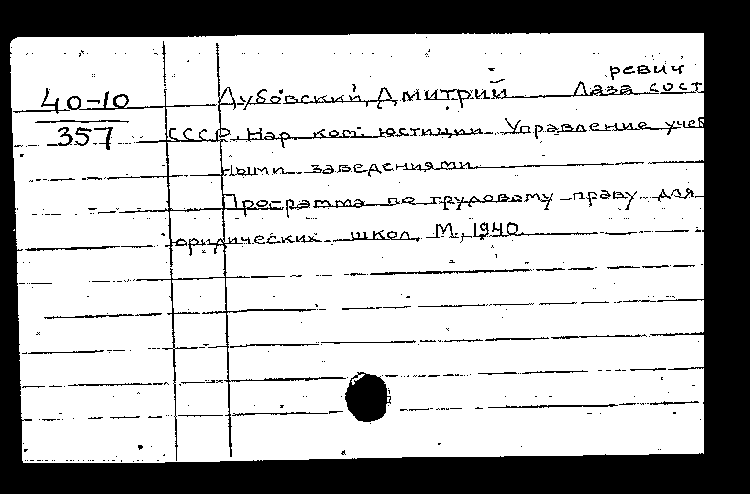 ревич
40-10 Дубовский, Дмитрий Лаза сост
357 СССР. Нар. ком. юстиции. Управление учеб
ными заведениями.
Программа по трудовому праву для
юридических школ. М., 1940.